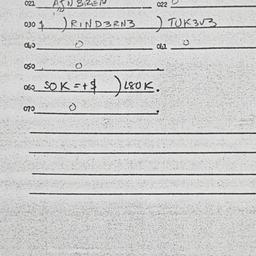 021 022
030 $ ) RIND3RN3 ) TUK3V3
040 0 061 0
050 0
060 SOK=+$ ) L80K.
070 0